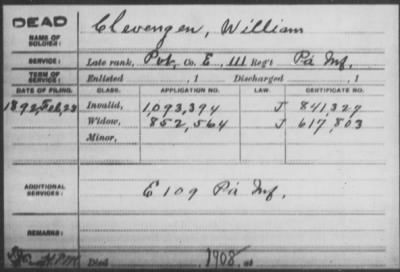 DEAD
NAME OF SOLDIER: Clevengen, William
SERVICE: Late rank, Pvt, Co. E, 111 Reg't Pa Inf,
TERM OF SERVICE: Enlisted , 1 Discharged , 1
DATE OF FILING. CLASS. APPLICATION NO. LAW. CERTIFICATE NO.
1892, Feb, 23 Invalid, 1,093,394 J 841,327
Widow, 852,564 J 617,803
Minor,
ADDITIONAL SERVICES: E 109 Pa Inf,
REMARKS:
Died 1908, at